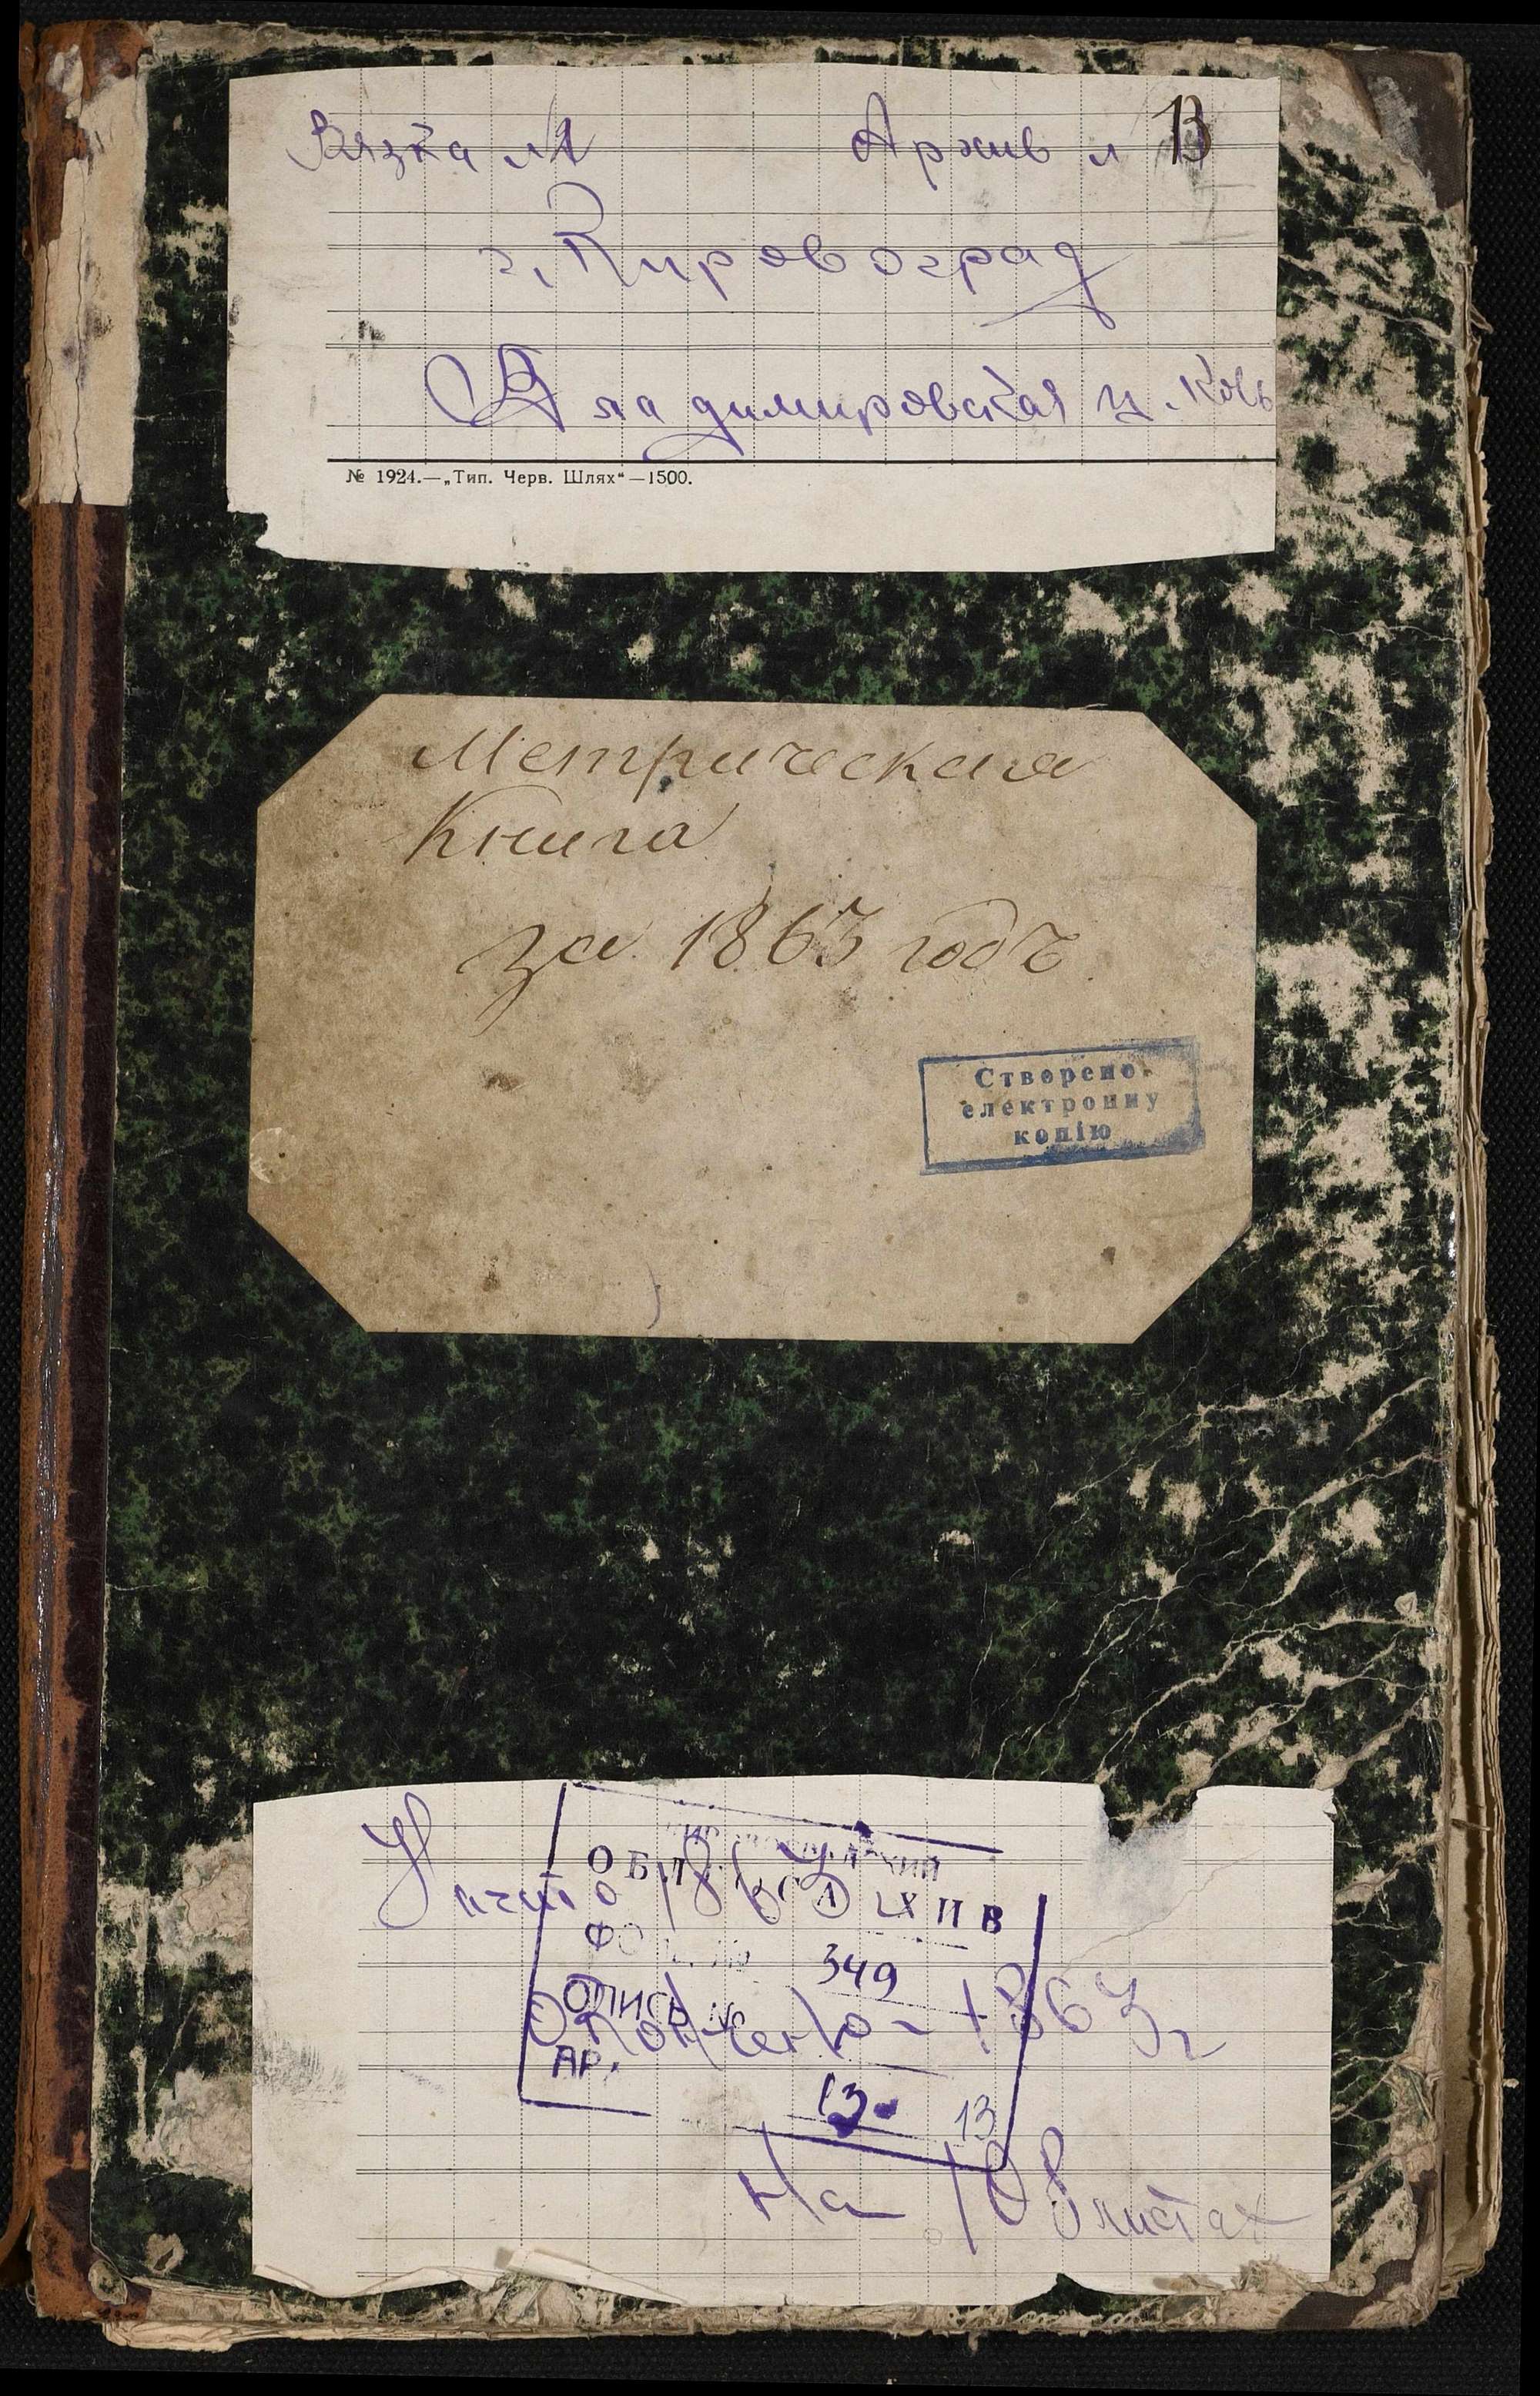 Вязка №1 Архив № 13
г. Кировоград
Владимировская ц. Ковъ
№ 1924.—„Тип. Черв. Шлях“—1500.
Метрическая
Книга
за 1863 годъ
Створено
електронну
копію
Начато 1863
ОБЛ АРХИВ
349
ОПИСЬ №
Окончено - 1863 г
АР.
13 13
На 108 листах